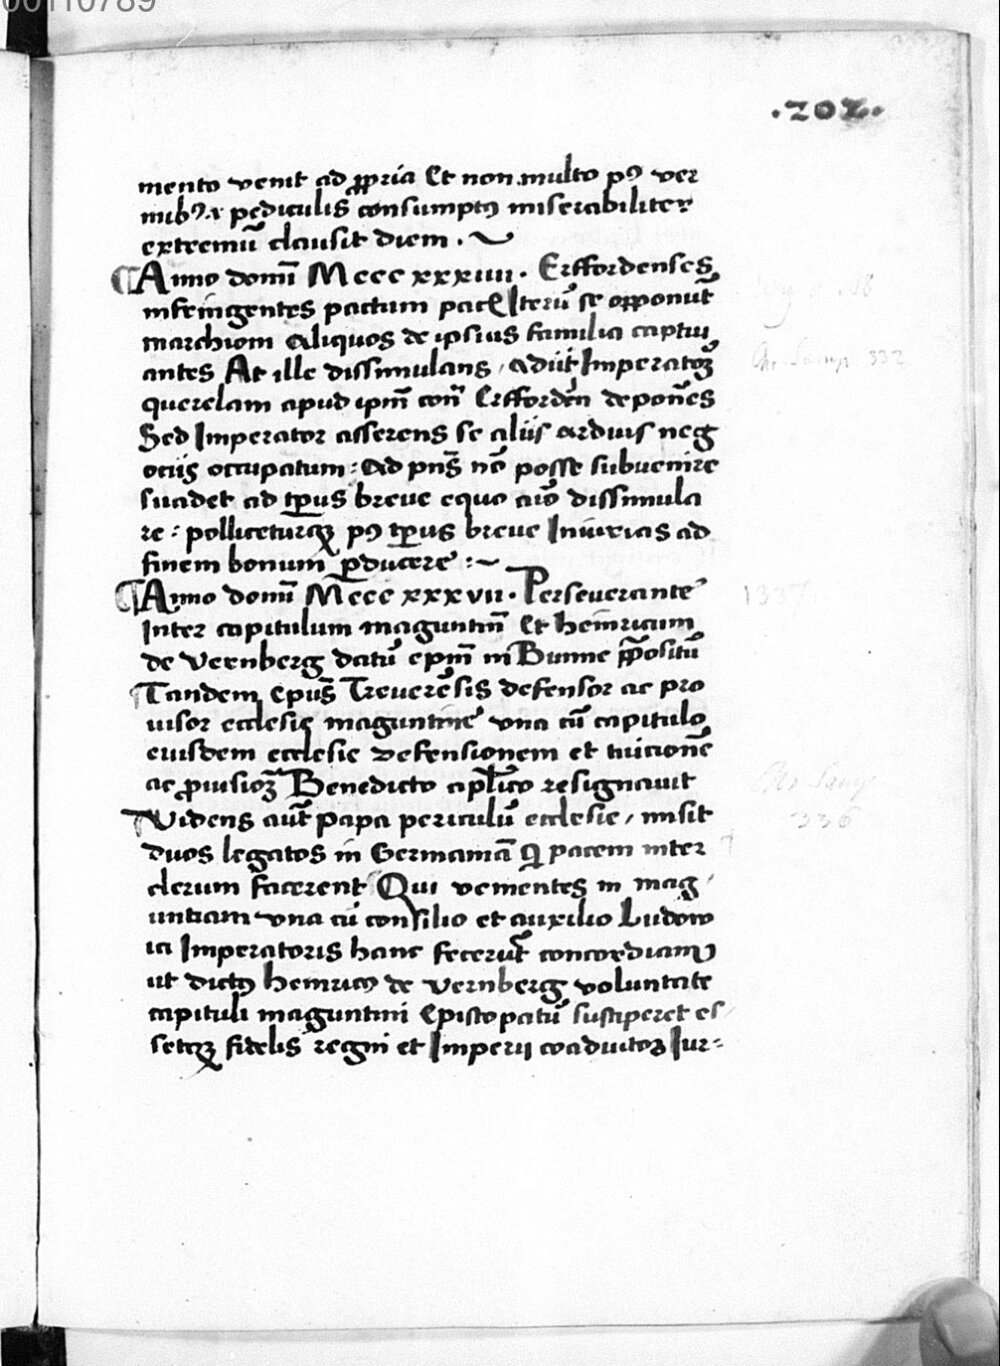 00110789
.202.
mento venit ad ꝓpria Et non multo pꝰ ver
mibꝰ ⁊ pediculis consumptꝰ miserabiliter
extremū clausit diem .
¶ Anno domī Mccc xxxiiii . Erffordenses
infringentes pactum pacis Iterū se opponūt
marchioni aliquos de ipsius familia captiu
antes At ille dissimulans , adiit Imperatorē
querelam apud ipm̄ con̄ Erfforden̄ depon̄es
Sed Imperator asserens se aliis arduis neg
ociis occupatum : ad pn̄s nō posse subuenire
suadet ad tp̄us breue equo aīo dissimula
re : polliceturqꝫ pꝰ tp̄us breue Iniurias ad
finem bonum ꝑducere :~
¶ Anno domī Mccc xxxvii . Perseuerante
Inter capitulum maguntin̄ Et heinricum
de vernberg datū epm̄ in Bunne ꝓpositū
Tandem epūs Treuerēsis defensor ac pro
uisor ecclesie maguntine vna cū capitulo
eiusdem ecclesie defensionem et tuicionē
ac ꝓuisioꝫ Benedicto apl̄ico resignauit
Videns aūt papa periculū ecclesie , misit
duos legatos in Germaniā qͥ pacem inter
clerum facerent Qui venientes in mag
untiam vna cū consilio et auxilio Ludow
ici Imperatoris hanc fecerūt concordiam
ut dictꝰ heinricꝰ de vernberg voluntate
capituli maguntini Episcopatū susciperet es
setqꝫ fidelis regni et Imperii coadiutor Iur⸗
332
1337
336